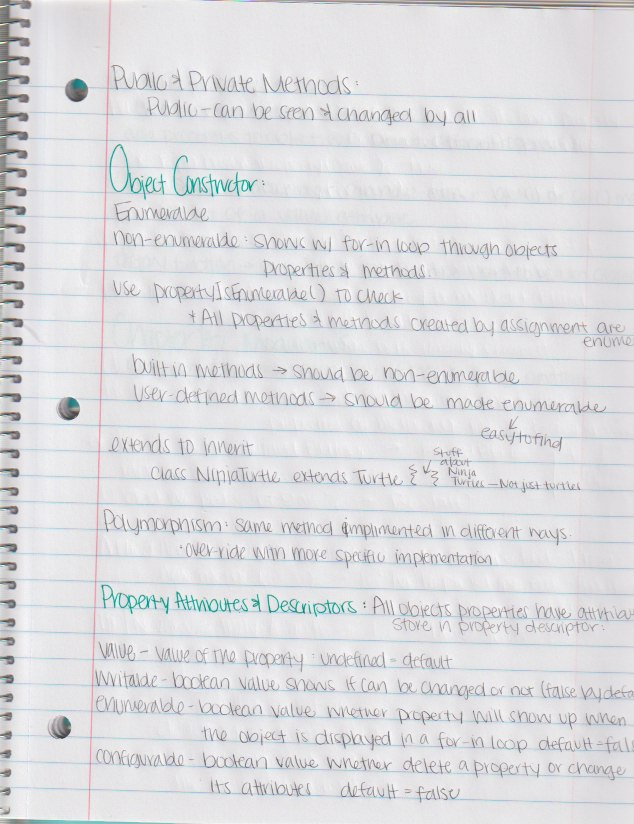 Public & Private Methods:
Public - can be seen & changed by all
Object Constructor:
Enumerable
non-enumerable: shows w/ for-in loop through objects
properties & methods.
use propertyIsEnumerable() to check
+ All properties & methods created by assignment are
enume
built in methods → should be non-enumerable
user-defined methods → should be made enumerable
easy to find
extends to inherit
class NinjaTurtle extends Turtle { }
stuff
about
Ninja
Turtles - Not just turtles
Polymorphism: same method implimented in different ways.
· over-ride with more specific implementation
Property Attributes & Descriptors: All objects properties have attribu
store in property descriptor:
value - value of the property: undefined = default
writable - boolean value shows if can be changed or not (false by defa
enumerable - boolean value whether property will show up when
the object is displayed in a for-in loop default = fals
configurable - boolean value whether delete a property or change
its attributes default = false